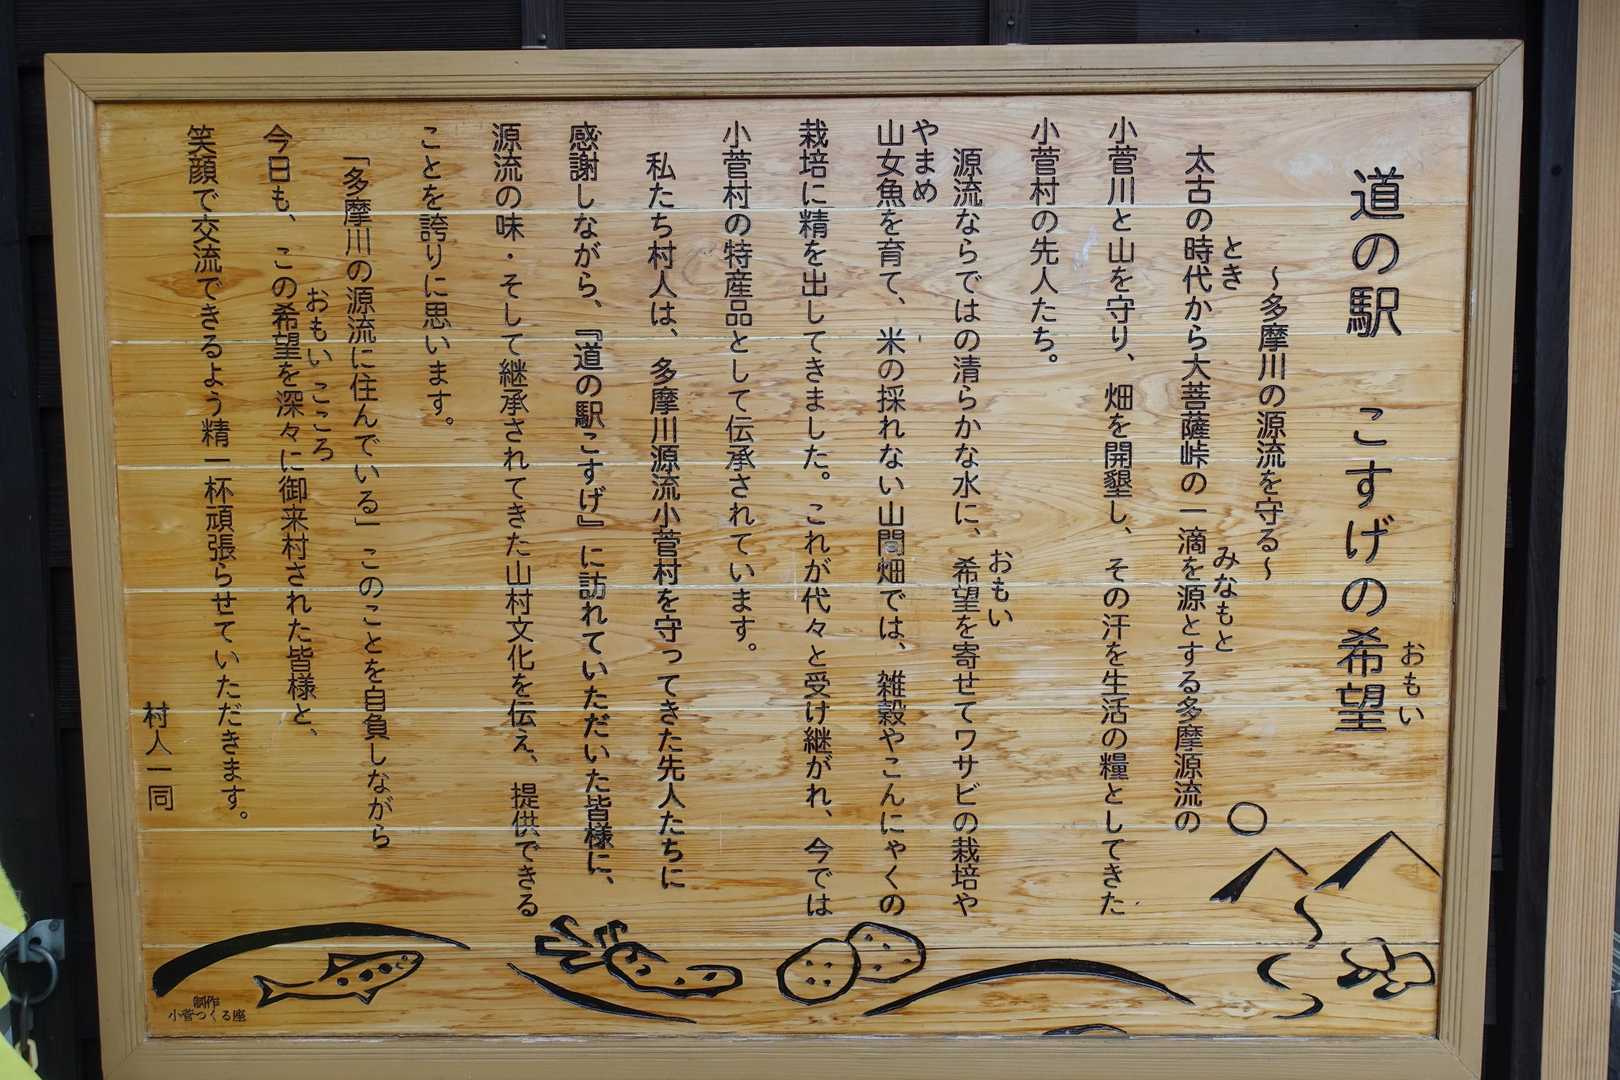 道の駅　こすげの希望
おもい
～多摩川の源流を守る～
とき
太古の時代から大菩薩峠の一滴を源とする多摩源流の
みなもと
小菅川と山を守り、畑を開墾し、その汗を生活の糧としてきた
小菅村の先人たち。
おもい
源流ならではの清らかな水に、希望を寄せてワサビの栽培や
やまめ
山女魚を育て、米の採れない山間畑では、雑穀やこんにゃくの
栽培に精を出してきました。これが代々と受け継がれ、今では
小菅村の特産品として伝承されています。
私たち村人は、多摩川源流小菅村を守ってきた先人たちに
感謝しながら、『道の駅こすげ』に訪れていただいた皆様に、
源流の味・そして継承されてきた山村文化を伝え、提供できる
ことを誇りに思います。
「多摩川の源流に住んでいる」このことを自負しながら
おもい こころ
今日も、この希望を深々に御来村された皆様と、
笑顔で交流できるよう精一杯頑張らせていただきます。
村人一同
制作
小菅つくる座